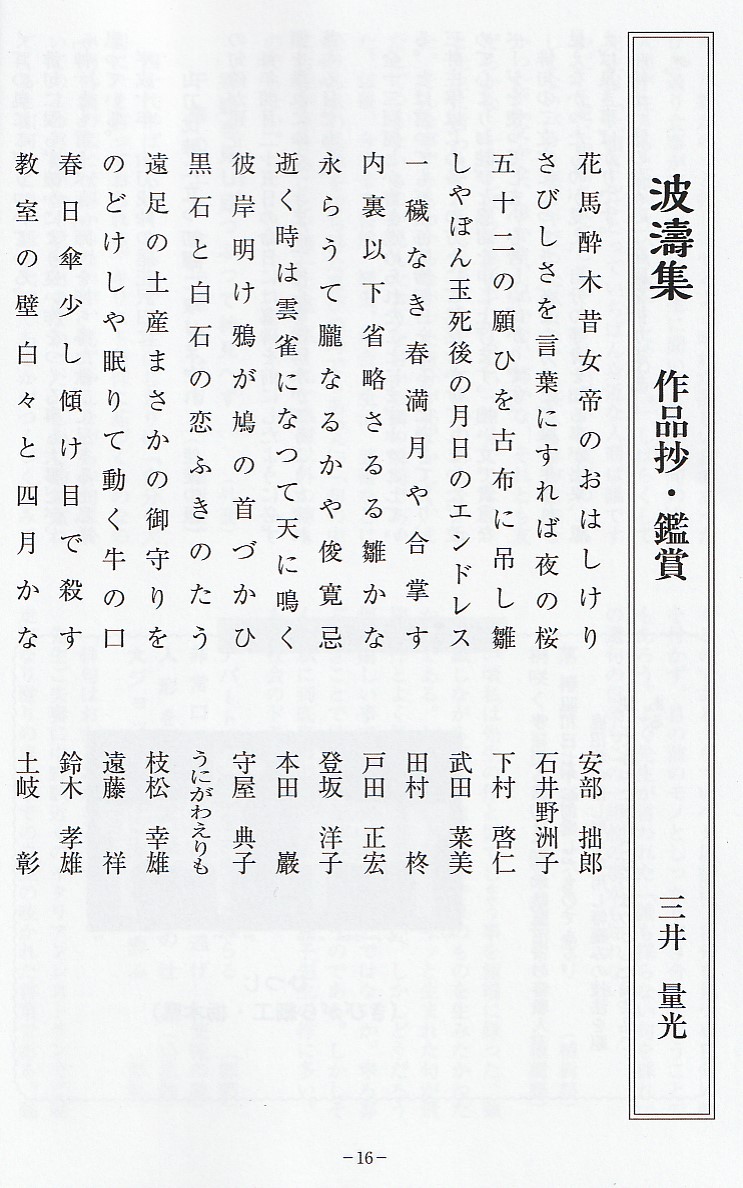 波濤集　作品抄・鑑賞　三井　量光
花馬酔木昔女帝のおはしけり　安部　拙郎
さびしさを言葉にすれば夜の桜　石井野洲子
五十二の願ひを古布に吊し雛　下村　啓仁
しやぼん玉死後の月日のエンドレス　武田　菜美
一穢なき春満月や合掌す　田村　柊
内裏以下省略さるる雛かな　戸田　正宏
永らうて朧なるかや俊寛忌　登坂　洋子
逝く時は雲雀になつて天に鳴く　本田　巖
彼岸明け鴉が鳩の首づかひ　守屋　典子
黒石と白石の恋ふきのたう　うにがわえりも
遠足の土産まさかの御守りを　枝松　幸雄
のどけしや眠りて動く牛の口　遠藤　祥
春日傘少し傾け目で殺す　鈴木　孝雄
教室の壁白々と四月かな　土岐　彰
－16－